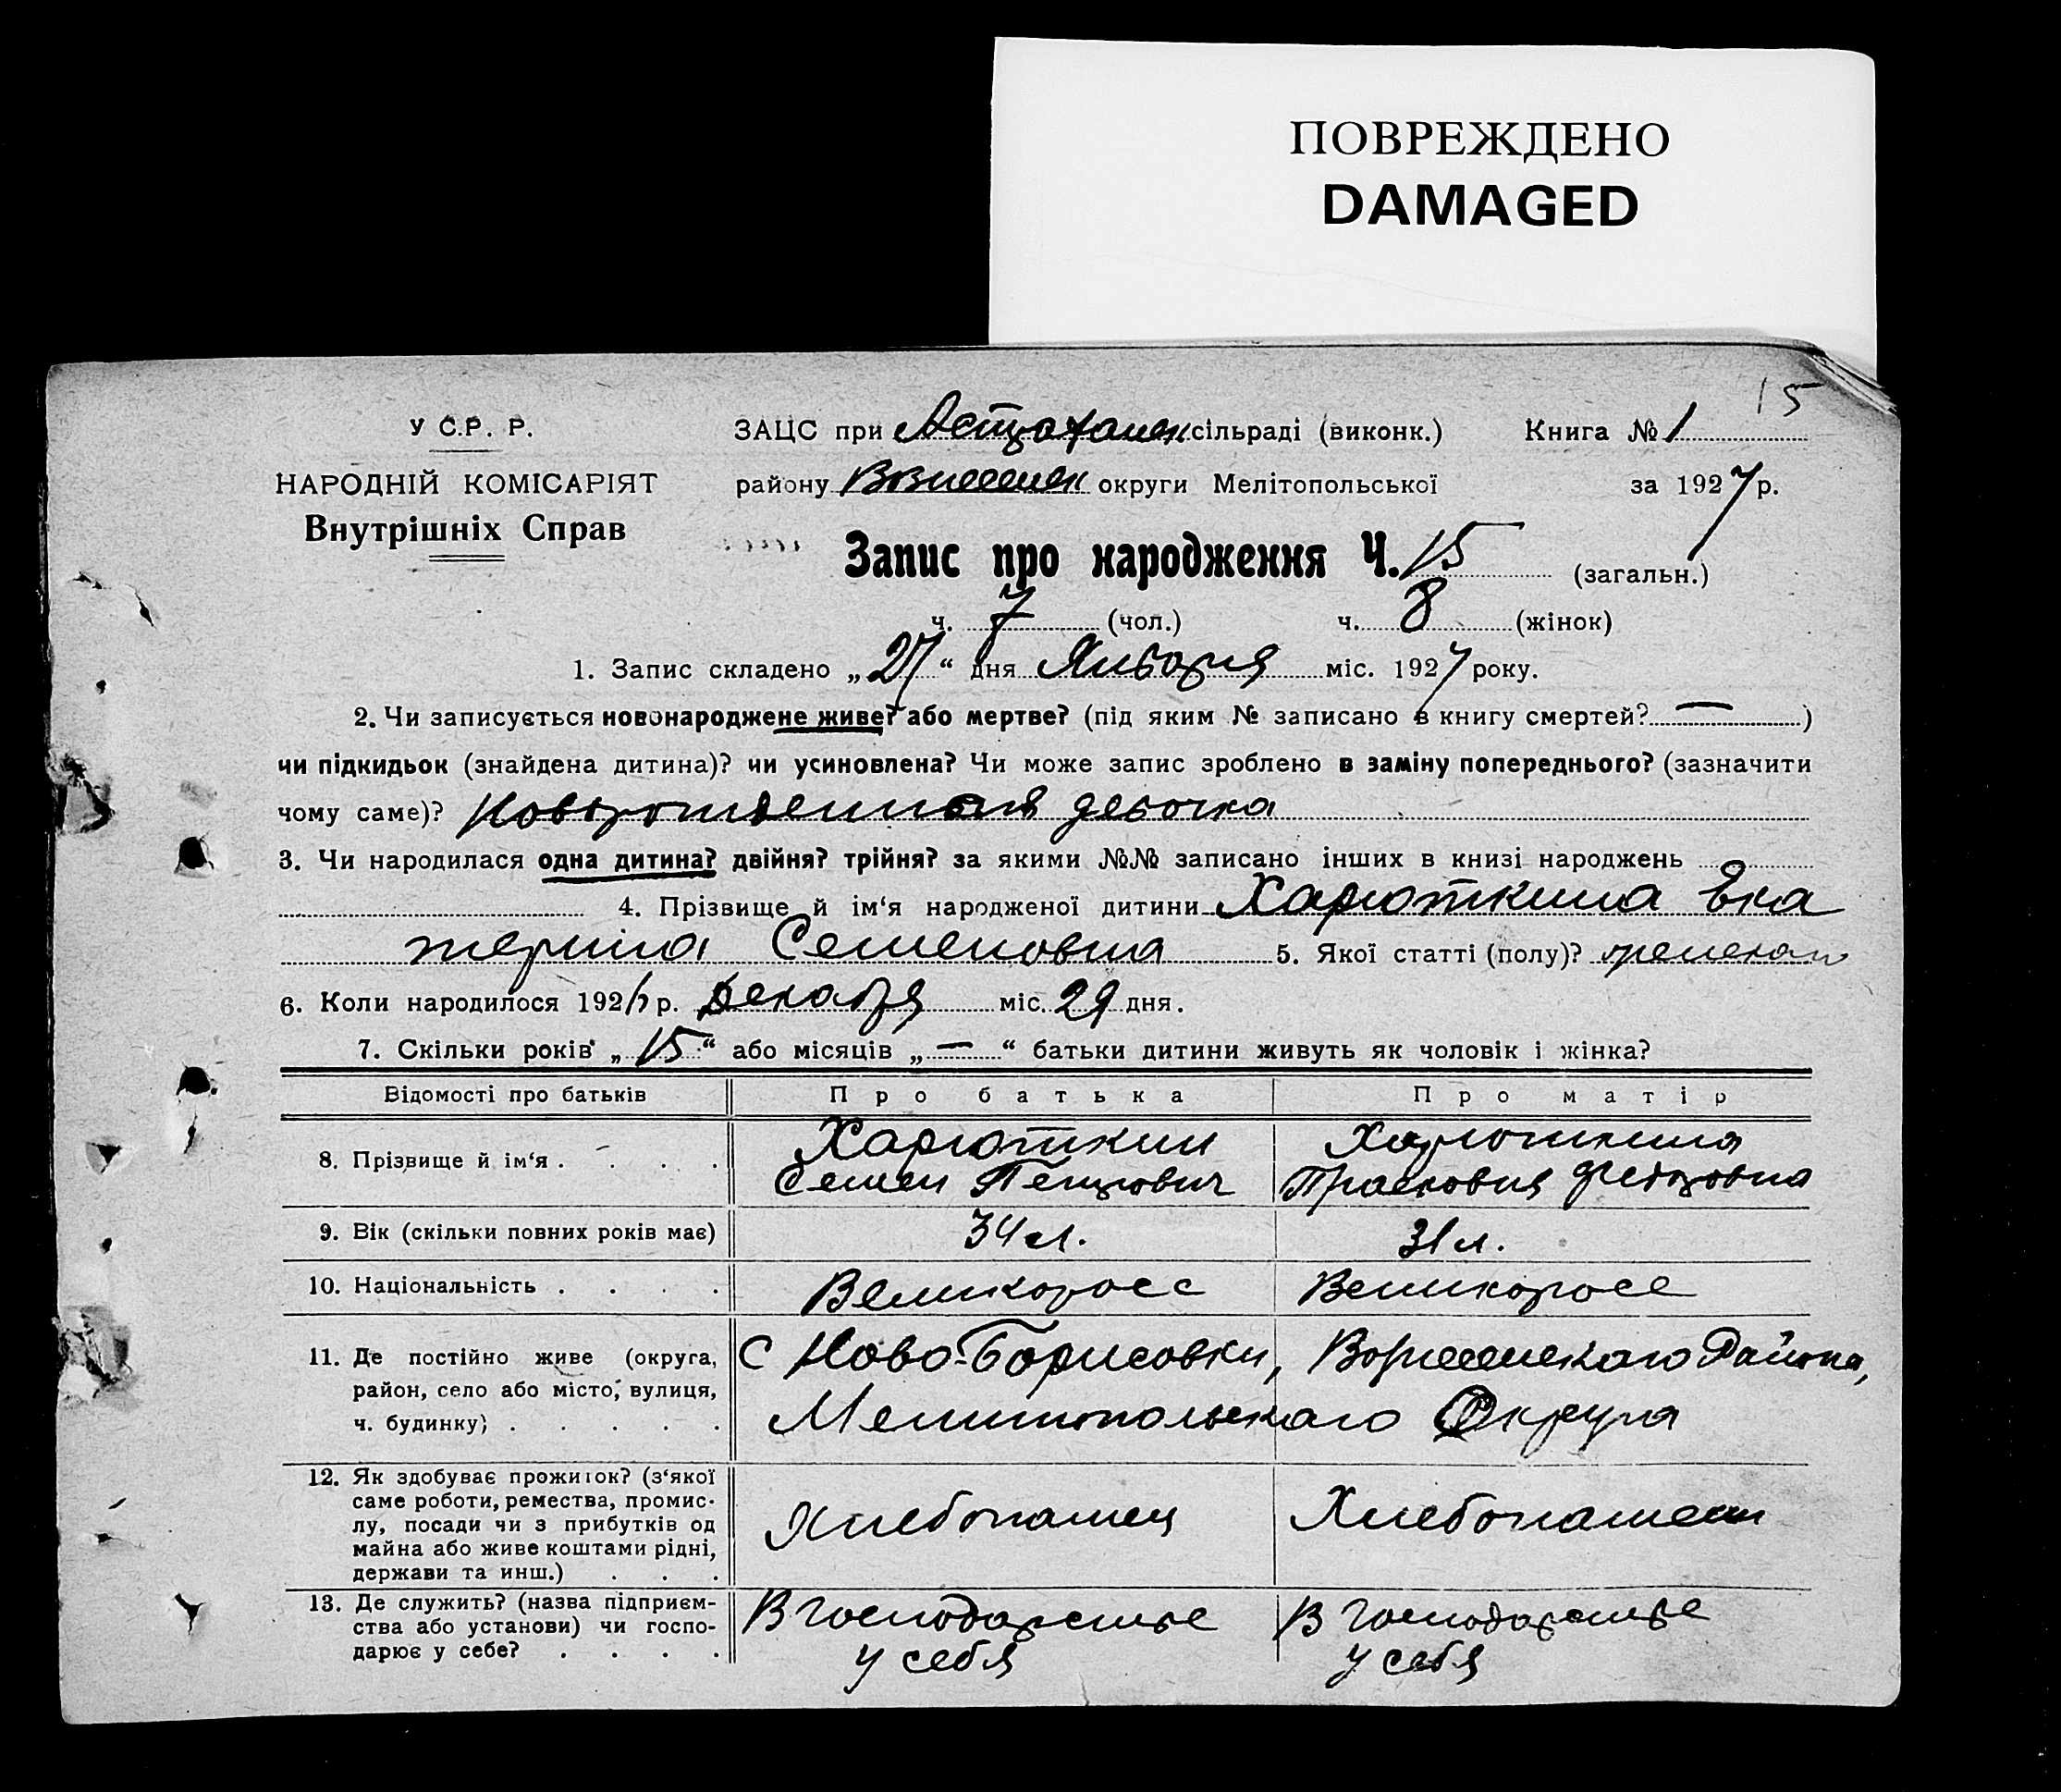 ПОВРЕЖДЕНО
DAMAGED
15
У С.Р. Р.
НАРОДНІЙ КОМІСАРІЯТ
Внутрішніх Справ
ЗАЦС при Астраханск сільраді (виконк.) Книга № 1
району Вознесенск округи Мелітопольської за 1927 р.
Запис про народження Ч. 15 (загальн.)
ч. 7 (чол.) ч. 8 (жінок)
1. Запис складено „27“ дня Января міс. 1927 року.
2. Чи записується новонароджене живе? або мертве? (під яким № записано в книгу смертей? — )
чи підкидьок (знайдена дитина)? чи усиновлена? Чи може запис зроблено в заміну попереднього? (зазначити
чому саме)? девочка
3. Чи народилася одна дитина? двійня? трійня? за якими №№ записано інших в книзі народжень
4. Прізвище й ім‘я народженої дитини Харюткина Ека
терина Семеновна 5. Якої статті (полу)?
6. Коли народилося 1926 р. Декабря міс. 29 дня.
7. Скільки років „15“ або місяців „—“ батьки дитини живуть як чоловік і жінка?
Відомості про батьків Про батька Про матір
8. Прізвище й ім‘я . . . . Харюткин Харюткина
Семен Петрович Прасковия Федоровна
9. Вік (скільки повних років має) 34 л. 31 л.
10. Національність . . . . Великоросс Великоросс
11. Де постійно живе (округа, с Ново-Борисовки, Району,
район, село або місто, вулиця,
ч. будинку) . . . . . Мелитопольскаго Округа
12. Як здобуває прожиток? (з‘якої
саме роботи, ремества, промис-
лу, посади чи з прибутків од Хлебопашец Хлебопашец
майна або живе коштами рідні,
держави та инш.) . . .
13. Де служить? (назва підприєм- В господарстве В господарстве
ства або установи) чи госпо-
дарює у себе? . . . . у себя у себя